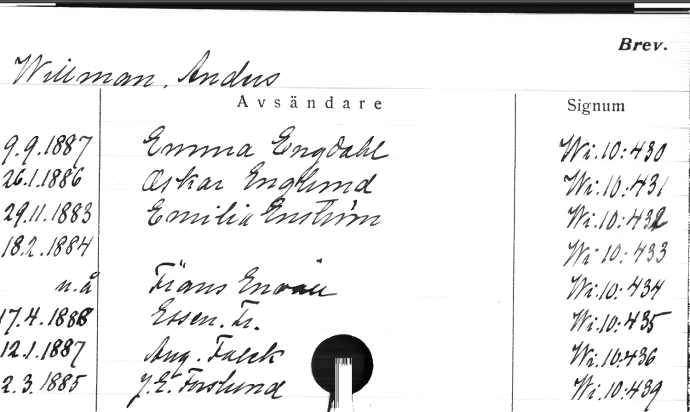 Brev.
Willman, Andus
Avsändare Signum
9.9.1887 Emma Engdahl Wi.10:430
26.1.1886 Oskar Englund Wi.10:431
29.11.1883 Emilia Enström Wi.10:432
18.2.1884 Wi.10:433
n.å Frans Wi.10:434
17.4.1888 Essen. Fr. Wi.10:435
12.1.1887 Aug. Falck Wi.10:436
2.3.1885 J.E. Forslund Wi.10:439